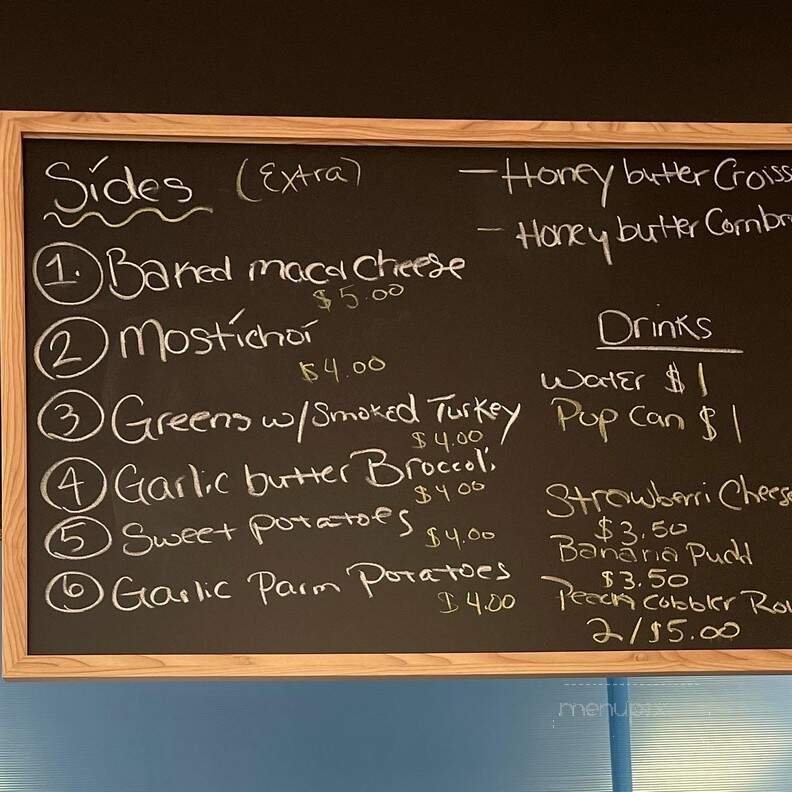 Sides (Extra)
1. Baked mac d Cheese
$5.00
2 Mostichoi
$4.00
3 Greens w/Smoked Turkey
$4.00
4 Garlic butter Broccoli
$4.00
5 Sweet potatoes
$4.00
6 Garlic Parm Potatoes
$4.00
- Honey butter Croiss
- Honey butter Cornbr
Drinks
Water $1
Pop Can $1
Strawberri Cheese
$3.50
Banana Pudd
$3.50
Peech cobbler Rol
2/$5.00
menupix